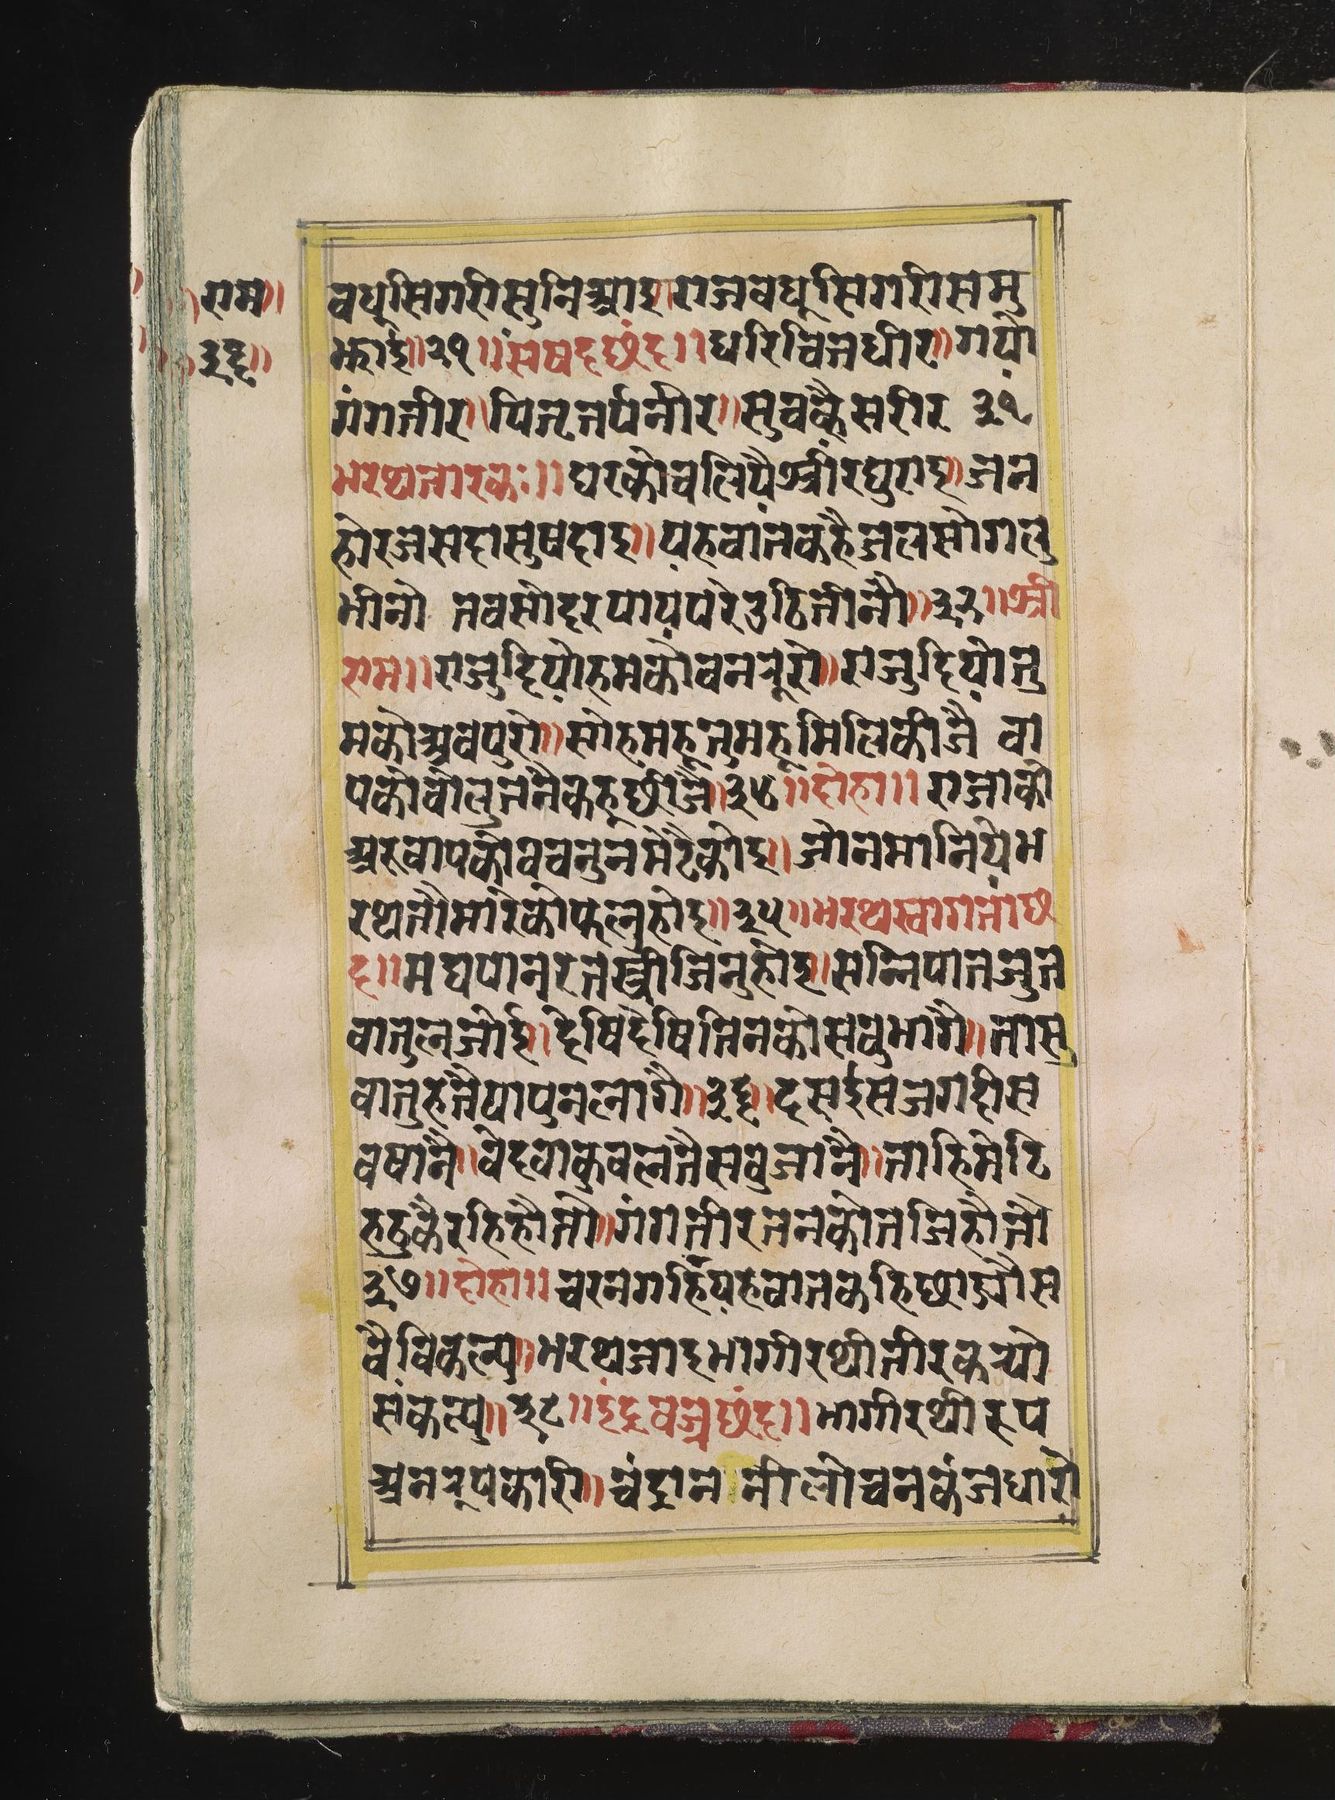 राम॥
३६॥
वधूसिगरीसुनिआइ॥राजवधूसिगरीसमु
झाई॥३१॥संषदछंद॥धरिचितधीर॥गये
गंगतीर॥पितृतर्पनीर॥सुचकैसरीर ३२
भरथतारकः॥घरकौचलियैश्रीरघुराइ॥जन
हौराजसदासुषदाइ॥यहवातकहैजलसोगलु
भीनो तवसोदरपाय़परेउठितीनौ॥३३॥श्री
राम॥राजुदियोहमकोवनरूरो॥राजुदियोतु
मकोअवपुरो॥सोहमहूतुमहूमिलिकीजै वा
पकोवोलुतनैकहूछीजै॥३४॥दोहा॥राजाको
अरुवापकोवचनुनमेटैकोइ॥जोनमानियेभ
रथतौमारेकोफलुहोइ॥३५॥भरथस्वागतांछं
द॥मद्यपानरतस्त्रीजितुहोइ॥सन्निपातजुत
वातुलजोई॥देषिदेषितिनकोसवुभागै॥तासु
वातुहतैपापुनलागै॥३६॥दसईसजगदीस
वषानै॥वेदवाकुवलतैसवुजानै॥ताहिमेटि
हठुकैरहिहौतौ॥गंगतीरतनकोतजिहौतौ
३७॥दोहा॥चरनगहियहवातकहिछाड्यौस
वैविकल्पु॥भरथजाइभागीरथीतीरकर्‍यौ
संकल्पु॥३८॥इंद्रवज्रछंद॥भागीरथीरूप
अनरूपकारी॥चंद्रान नीलोचनकंजधारी